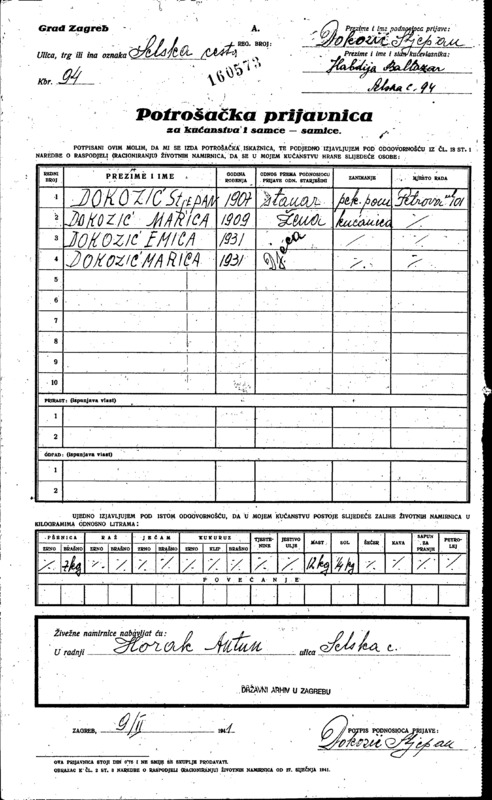 Grad Zagreb
A.
Prezime i ime podnosioca prijave:
Dokozić Stjepan
Ulica, trg ili ina oznaka Selska cesta
REG. BROJ:
160573
Prezime i ime i stan kućevlasnika:
Habdija Baltazar
Kbr. 94
Selska c. 94
Potrošačka prijavnica
za kućanstva i samce — samice.
POTPISANI OVIM MOLIM, DA MI SE IZDA POTROŠAČKA ISKAZNICA, TE PODJEDNO IZJAVLJUJEM POD ODGOVORNOŠĆU IZ ČL. 18 ST. 1
NAREDBE O RASPODJELI (RACIONIRANJU) ŽIVOTNIH NAMIRNICA, DA SE U MOJEM KUĆANSTVU HRANE SLIJEDEĆE OSOBE:
REDNI BROJ PREZIME I IME GODINA ROĐENJA ODNOS PREMA PODNOSIOCU PRIJAVE ODN. STARJEŠINI ZANIMANJE MJESTO RADA
1 DOKOZIĆ STJEPAN 1907 Stanar pek. pom Petrova 101
2 DOKOZIĆ MARICA 1909 Žena kućanica ·/.
3 DOKOZIĆ EMICA 1931 Djeca ·/. ·/.
4 DOKOZIĆ MARICA 1931 ·/. ·/.
5
6
7
8
9
10
PRIRAST: (ispunjava vlast)
1
2
OTPAD: (ispunjava vlast)
1
2
UJEDNO IZJAVLJUJEM POD ISTOM ODGOVORNOŠĆU, DA U MOJEM KUĆANSTVU POSTOJE SLIJEDEĆE ZALIHE ŽIVOTNIH NAMIRNICA U
KILOGRAMIMA ODNOSNO LITRAMA:
PŠENICA RAŽ JEČAM KUKURUZ TJESTENINE JESTIVO ULJE MAST SOL ŠEĆER KAVA SAPUN ZA PRANJE PETROLEJ
ZRNO BRAŠNO ZRNO BRAŠNO ZRNO BRAŠNO ZRNO KLIP BRAŠNO
·/. 7kg ·/. ·/. ·/. ·/. ·/. ·/. ·/. ·/. ·/. 12kg ¼kg ·/. ·/. ·/. ·/.
POVEĆANJE
Živežne namirnice nabavljat ću:
U radnji Horak Antun ulica Selska c.
DRŽAVNI ARHIV U ZAGREBU
ZAGREB, 9/II 1941
POTPIS PODNOSIOCA PRIJAVE:
Dokozić Stjepan
OVA PRIJAVNICA STOJI DIN 0·75 I NE SMIJE SE SKUPLJE PRODAVATI.
OBRAZAC K ČL. 2 ST. 3 NAREDBE O RASPODJELI (RACIONIRANJU) ŽIVOTNIH NAMIRNICA OD 27. SIJEČNJA 1941.